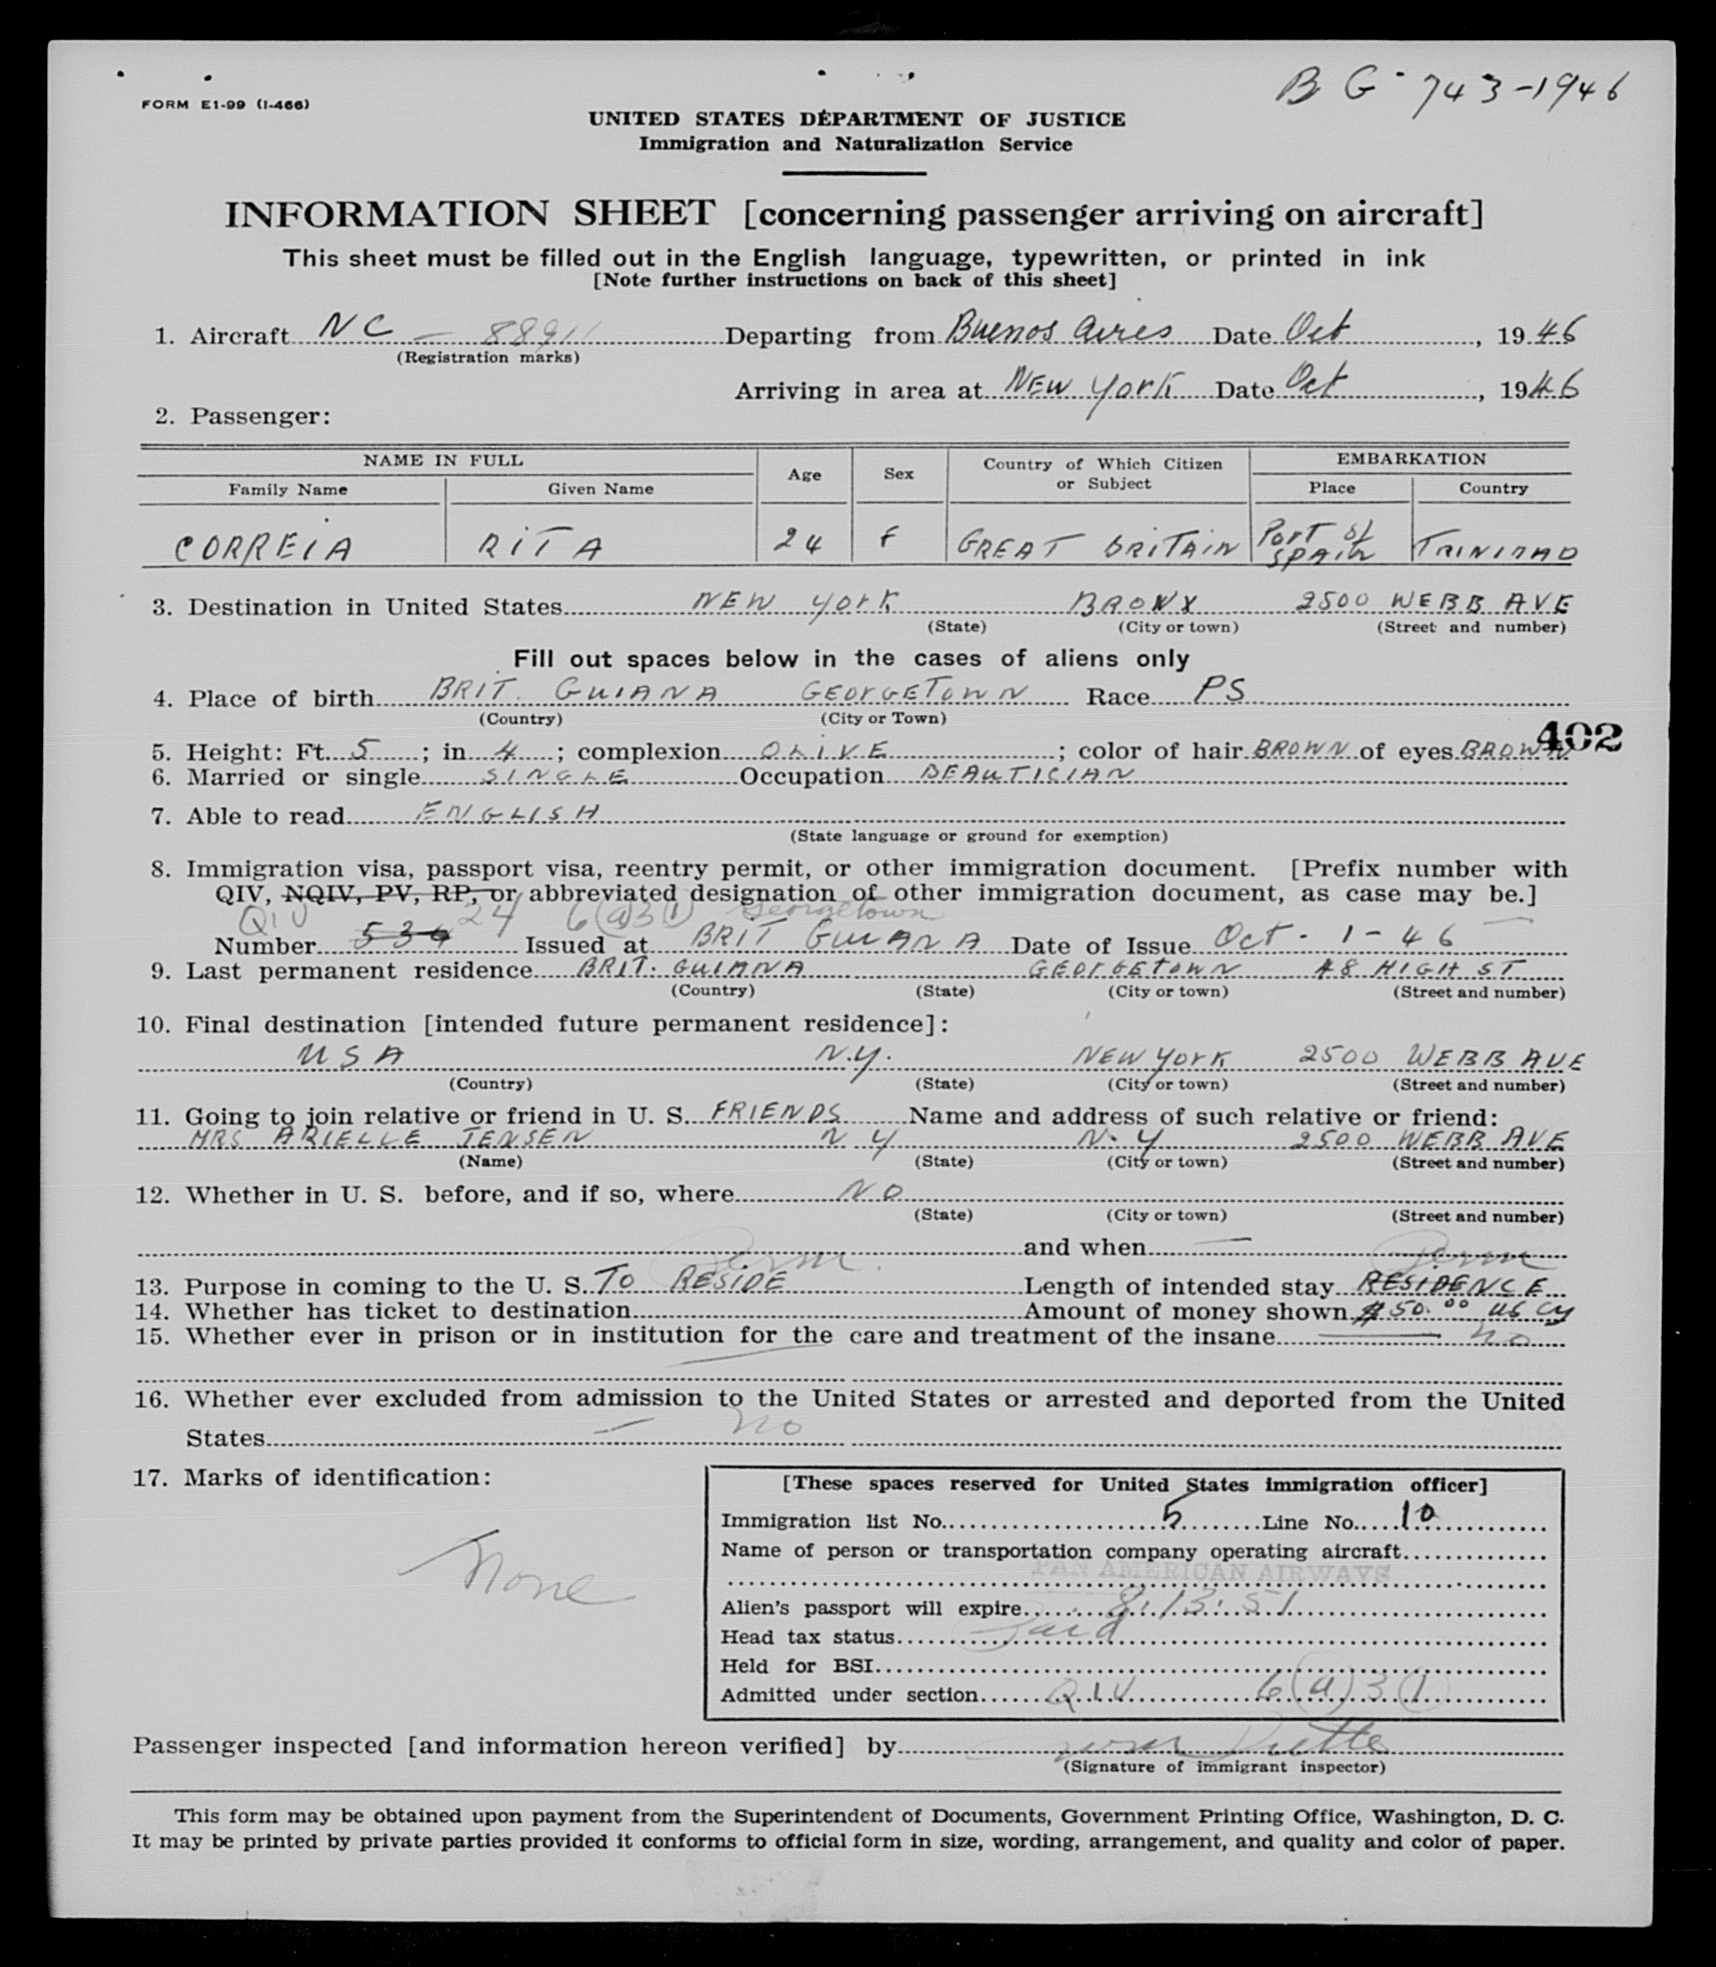 B G - 743-1946
FORM E1-99 (I-466)
UNITED STATES DEPARTMENT OF JUSTICE
Immigration and Naturalization Service
INFORMATION SHEET [concerning passenger arriving on aircraft]
This sheet must be filled out in the English language, typewritten, or printed in ink
[Note further instructions on back of this sheet]
1. Aircraft NC - 88911 Departing from Buenos Aires Date Oct , 1946
(Registration marks)
Arriving in area at New York Date Oct , 1946
2. Passenger:
NAME IN FULL Age Sex Country of Which Citizen or Subject EMBARKATION
Family Name Given Name Place Country
CORREIA RITA 24 F GREAT BRITAIN Port of SPAIN TRINIDAD
3. Destination in United States NEW YORK BRONX 2500 WEBB AVE
(State) (City or town) (Street and number)
Fill out spaces below in the cases of aliens only
4. Place of birth BRIT. GUIANA GEORGETOWN Race PS
(Country) (City or Town)
402
5. Height: Ft. 5 ; in 4 ; complexion OLIVE ; color of hair BROWN of eyes BROWN
6. Married or single SINGLE Occupation BEAUTICIAN
7. Able to read ENGLISH
(State language or ground for exemption)
8. Immigration visa, passport visa, reentry permit, or other immigration document. [Prefix number with
QIV, NQIV, PV, RP, or abbreviated designation of other immigration document, as case may be.]
QIV 24 6(a)3(1) Georgetown
Number 534 Issued at BRIT GUIANA Date of Issue Oct - 1 - 46
9. Last permanent residence BRIT. GUIANA GEORGETOWN 48 HIGH ST
(Country) (State) (City or town) (Street and number)
10. Final destination [intended future permanent residence]:
USA N.Y. NEW YORK 2500 WEBB AVE
(Country) (State) (City or town) (Street and number)
11. Going to join relative or friend in U. S. FRIENDS Name and address of such relative or friend:
MRS ARIELLE JENSEN N Y N. Y 2500 WEBB AVE
(Name) (State) (City or town) (Street and number)
12. Whether in U. S. before, and if so, where NO
(State) (City or town) (Street and number)
and when —
Perm. Perm
13. Purpose in coming to the U. S. TO RESIDE Length of intended stay RESIDENCE
14. Whether has ticket to destination Amount of money shown $50.00 US Cy
15. Whether ever in prison or in institution for the care and treatment of the insane — no
16. Whether ever excluded from admission to the United States or arrested and deported from the United
States — no
17. Marks of identification:
None
[These spaces reserved for United States immigration officer]
Immigration list No. 5 Line No. 10
Name of person or transportation company operating aircraft
PAN AMERICAN AIRWAYS
Alien's passport will expire 8.13.51
Head tax status Paid
Held for BSI
Admitted under section QIV 6(a)3(1)
Passenger inspected [and information hereon verified] by
(Signature of immigrant inspector)
This form may be obtained upon payment from the Superintendent of Documents, Government Printing Office, Washington, D. C.
It may be printed by private parties provided it conforms to official form in size, wording, arrangement, and quality and color of paper.